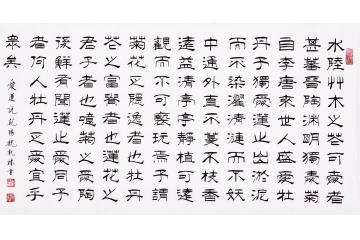 水陸艸木之花可愛者
甚蕃晉陶淵明獨愛菊
自李唐來世人盛愛牡
丹予獨愛蓮之出淤泥
而不染濯清漣而不妖
中通外直不蔓不枝香
遠益清亭亭靜植可遠
觀而不可褻玩焉予謂
菊花之隱逸者也牡丹
花之富貴者也蓮花之
君子者也噫菊之愛陶
後鮮有聞蓮之愛同予
者何人牡丹之愛宜乎
眾矣
愛蓮說 書